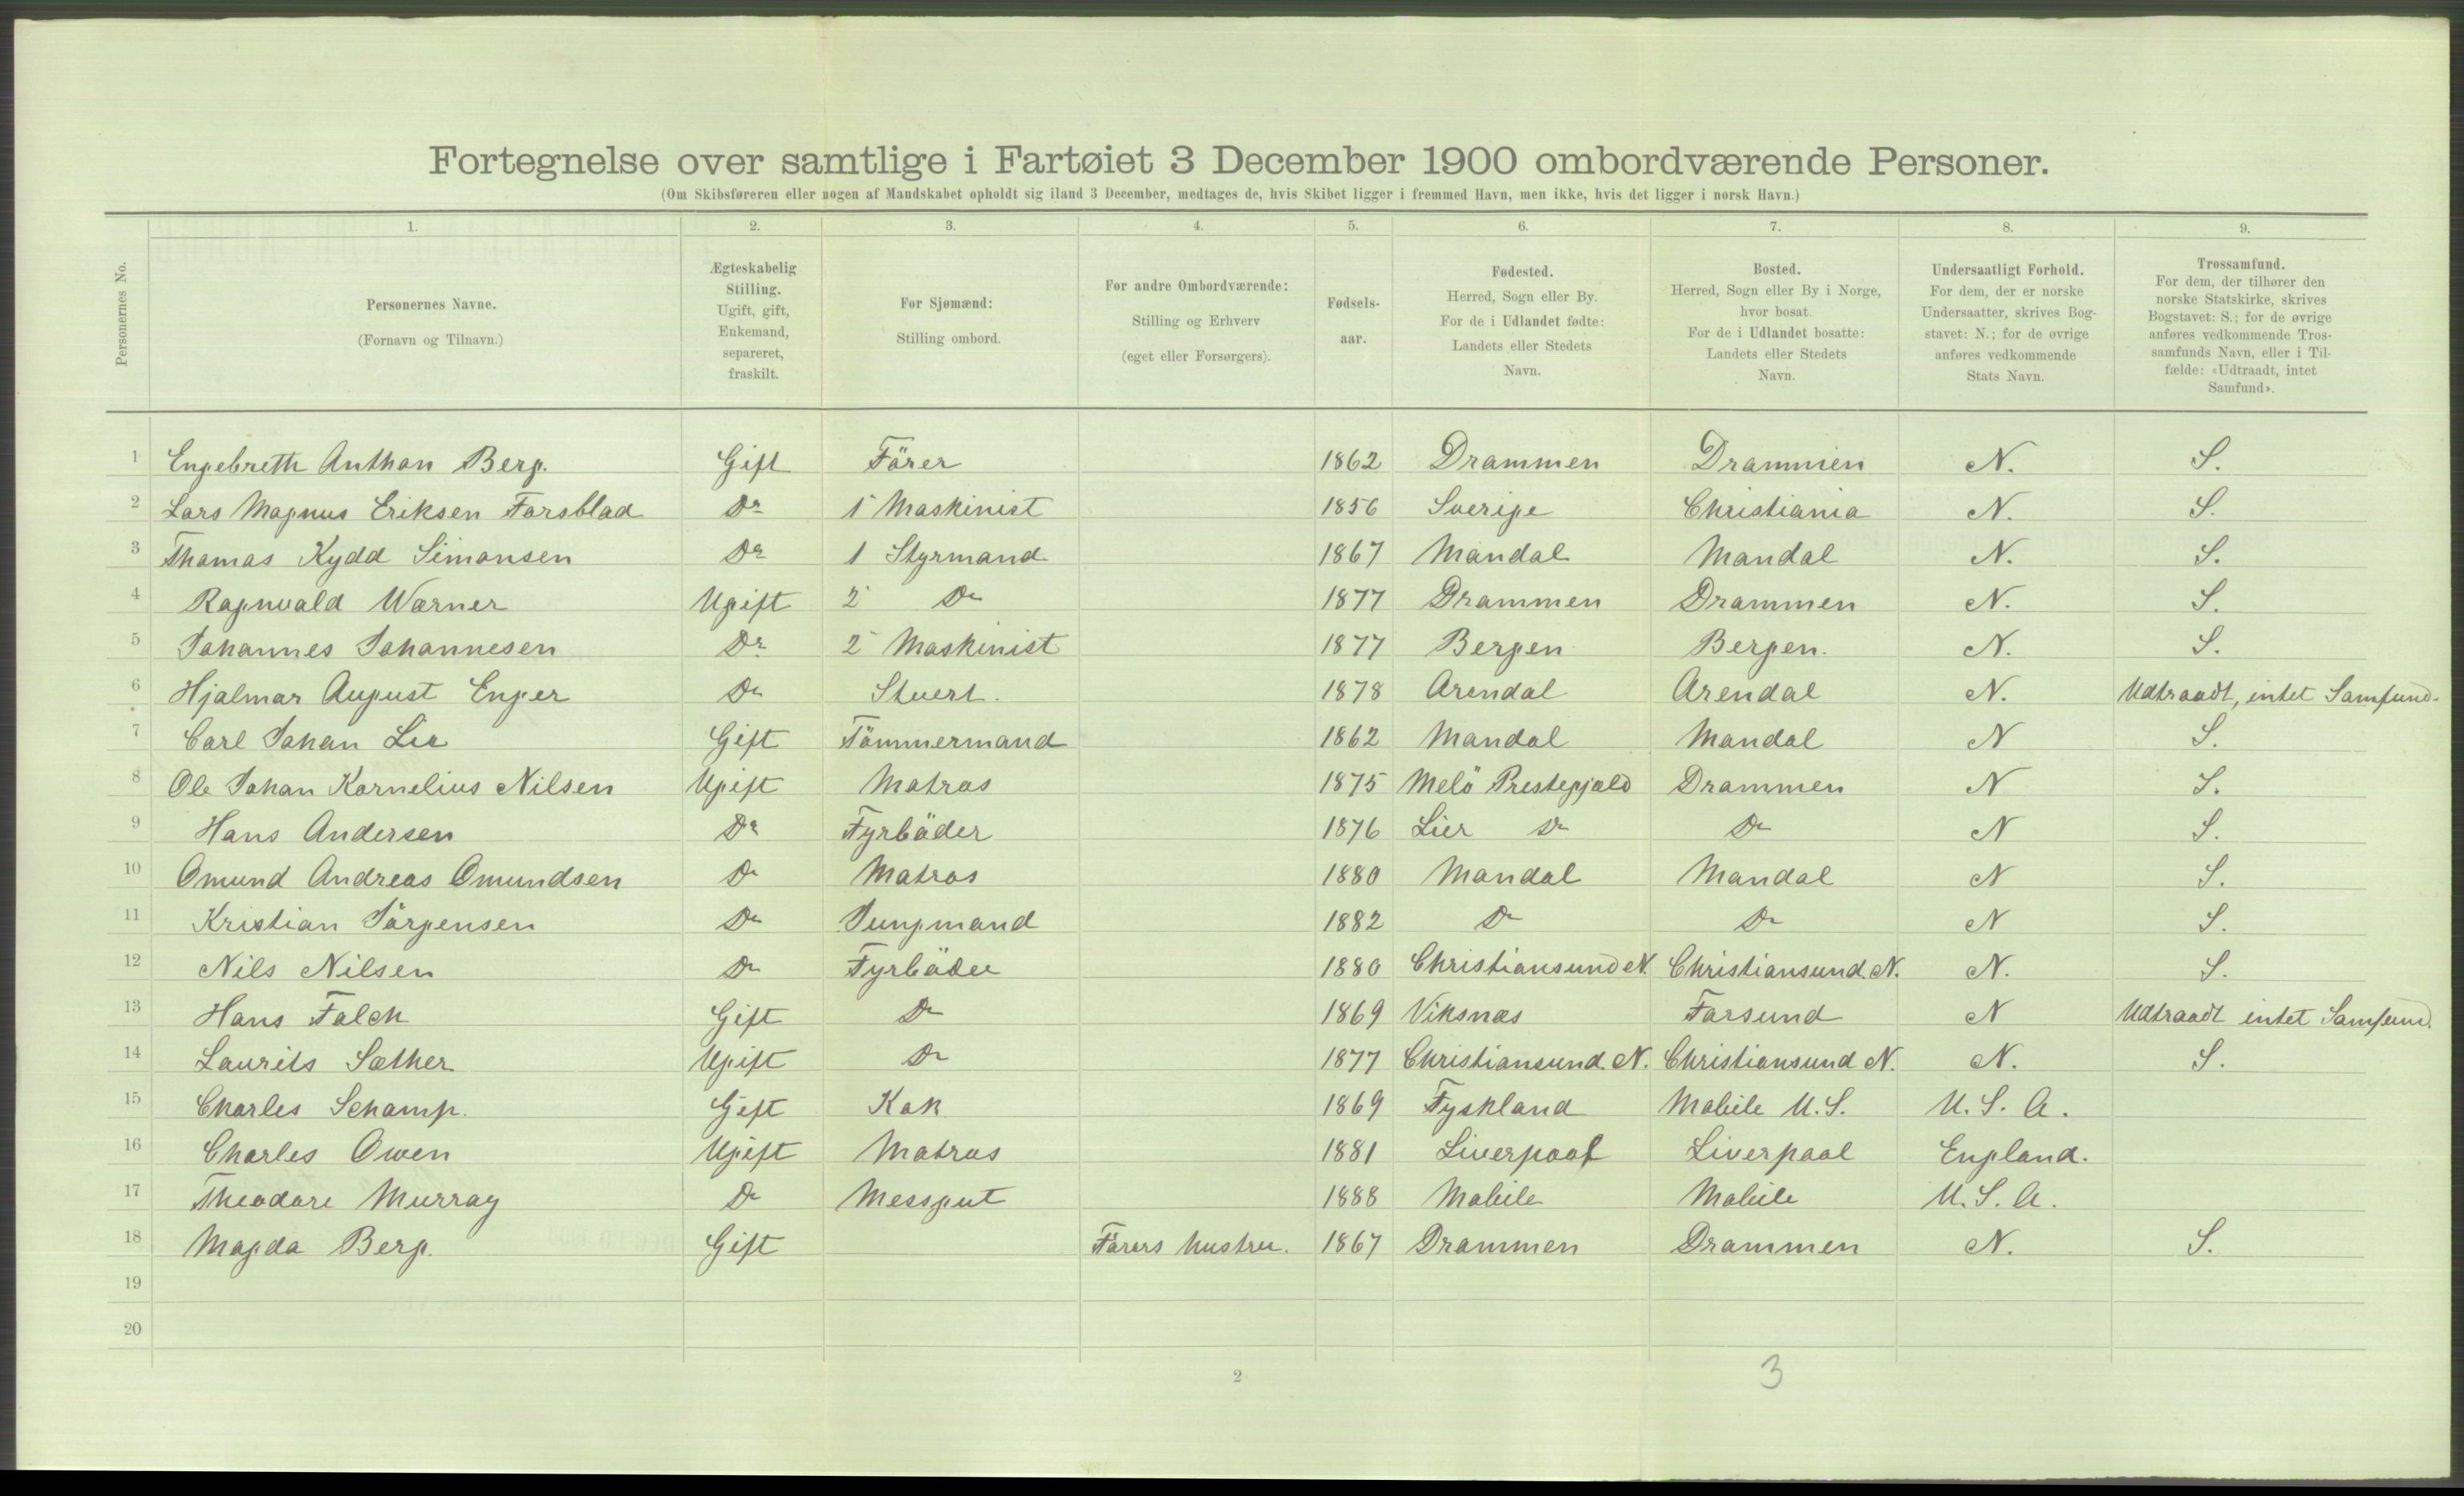 Fortegnelse over samtlige i Fartøiet 3 December 1900 ombordværende Personer.
(Om Skibsføreren eller nogen af Mandskabet opholdt sig iland 3 December, medtages de, hvis Skibet ligger i fremmed Havn, men ikke, hvis det ligger i norsk Havn.)
Personernes No.
1. 2. 3. 4. 5. 6. 7. 8. 9.
Personernes Navne.
(Fornavn og Tilnavn.)
Ægteskabelig
Stilling.
Ugift, gift,
Enkemand,
separeret,
fraskilt.
For Sjømænd:
Stilling ombord.
For andre Ombordværende:
Stilling og Erhverv
(eget eller Forsørgers).
Fødsels-
aar.
Fødested.
Herred, Sogn eller By.
For de i Udlandet fødte:
Landets eller Stedets
Navn.
Bosted.
Herred, Sogn eller By i Norge,
hvor bosat.
For de i Udlandet bosatte:
Landets eller Stedets
Navn.
Undersaatligt Forhold.
For dem, der er norske
Undersaatter, skrives Bog-
stavet: N.; for de øvrige
anføres vedkommende
Stats Navn.
Trossamfund.
For dem, der tilhører den
norske Statskirke, skrives
Bogstavet: S.; for de øvrige
anføres vedkommende Tros-
samfunds Navn, eller i Til-
fælde: «Udtraadt, intet
Samfund».
1 Engebreth Anthon Berg. Gift Förer 1862 Drammen Drammen N. S.
2 Lars Magnus Eriksen Farsblad Do 1 Maskinist 1856 Sverige Christiania N. S.
3 Thomas Kydd Simonsen Do 1 Styrmand 1867 Mandal Mandal N. S.
4 Ragnvald Wærner Ugift 2 Do 1877 Drammen Drammen N. S.
5 Johannes Johannesen Do 2 Maskinist 1877 Bergen Bergen. N. S.
6 Hjalmar August Enger Do Stuert. 1878 Arendal Arendal N. Udtraadt, intet Samfund.
7 Carl Johan Lie Gift Tömmermand 1862 Mandal Mandal N S.
8 Ole Johan Kornelius Nilsen Ugift Matros 1875 Melö Prestegjæld Drammen N S.
9 Hans Andersen Do Fyrböder 1876 Lier Do Do N S.
10 Omund Andreas Omundsen Do Matros 1880 Mandal Mandal N S.
11 Kristian Jörgensen Do Jungmand 1882 Do Do N S.
12 Nils Nilsen Do Fyrböder 1880 Christiansund N. Christiansund. N. N. S.
13 Hans Falch Gift Do 1869 Viksnæs Farsund N Udtraadt intet Samfund.
14 Laurits Sæther Ugift Do 1877 Christiansund. N. Christiansund N. N. S.
15 Charles Schamp. Gift Kok 1869 Tyskland Mobile U.S. U.S.A.
16 Charles Owen Ugift Matros 1881 Liverpool Liverpool England.
17 Theodore Murray Do Messgut 1888 Mobile Mobile U.S.A.
18 Magda Berg. Gift Förers hustru. 1867 Drammen Drammen N. S.
19
20
2
3